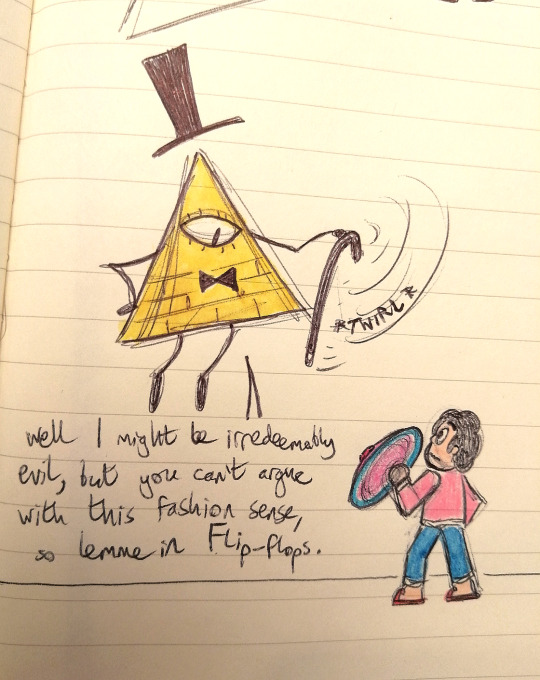 *TWIRL*
well I might be irredeemably
evil, but you can't argue
with this fashion sense,
so lemme in Flip-flops.